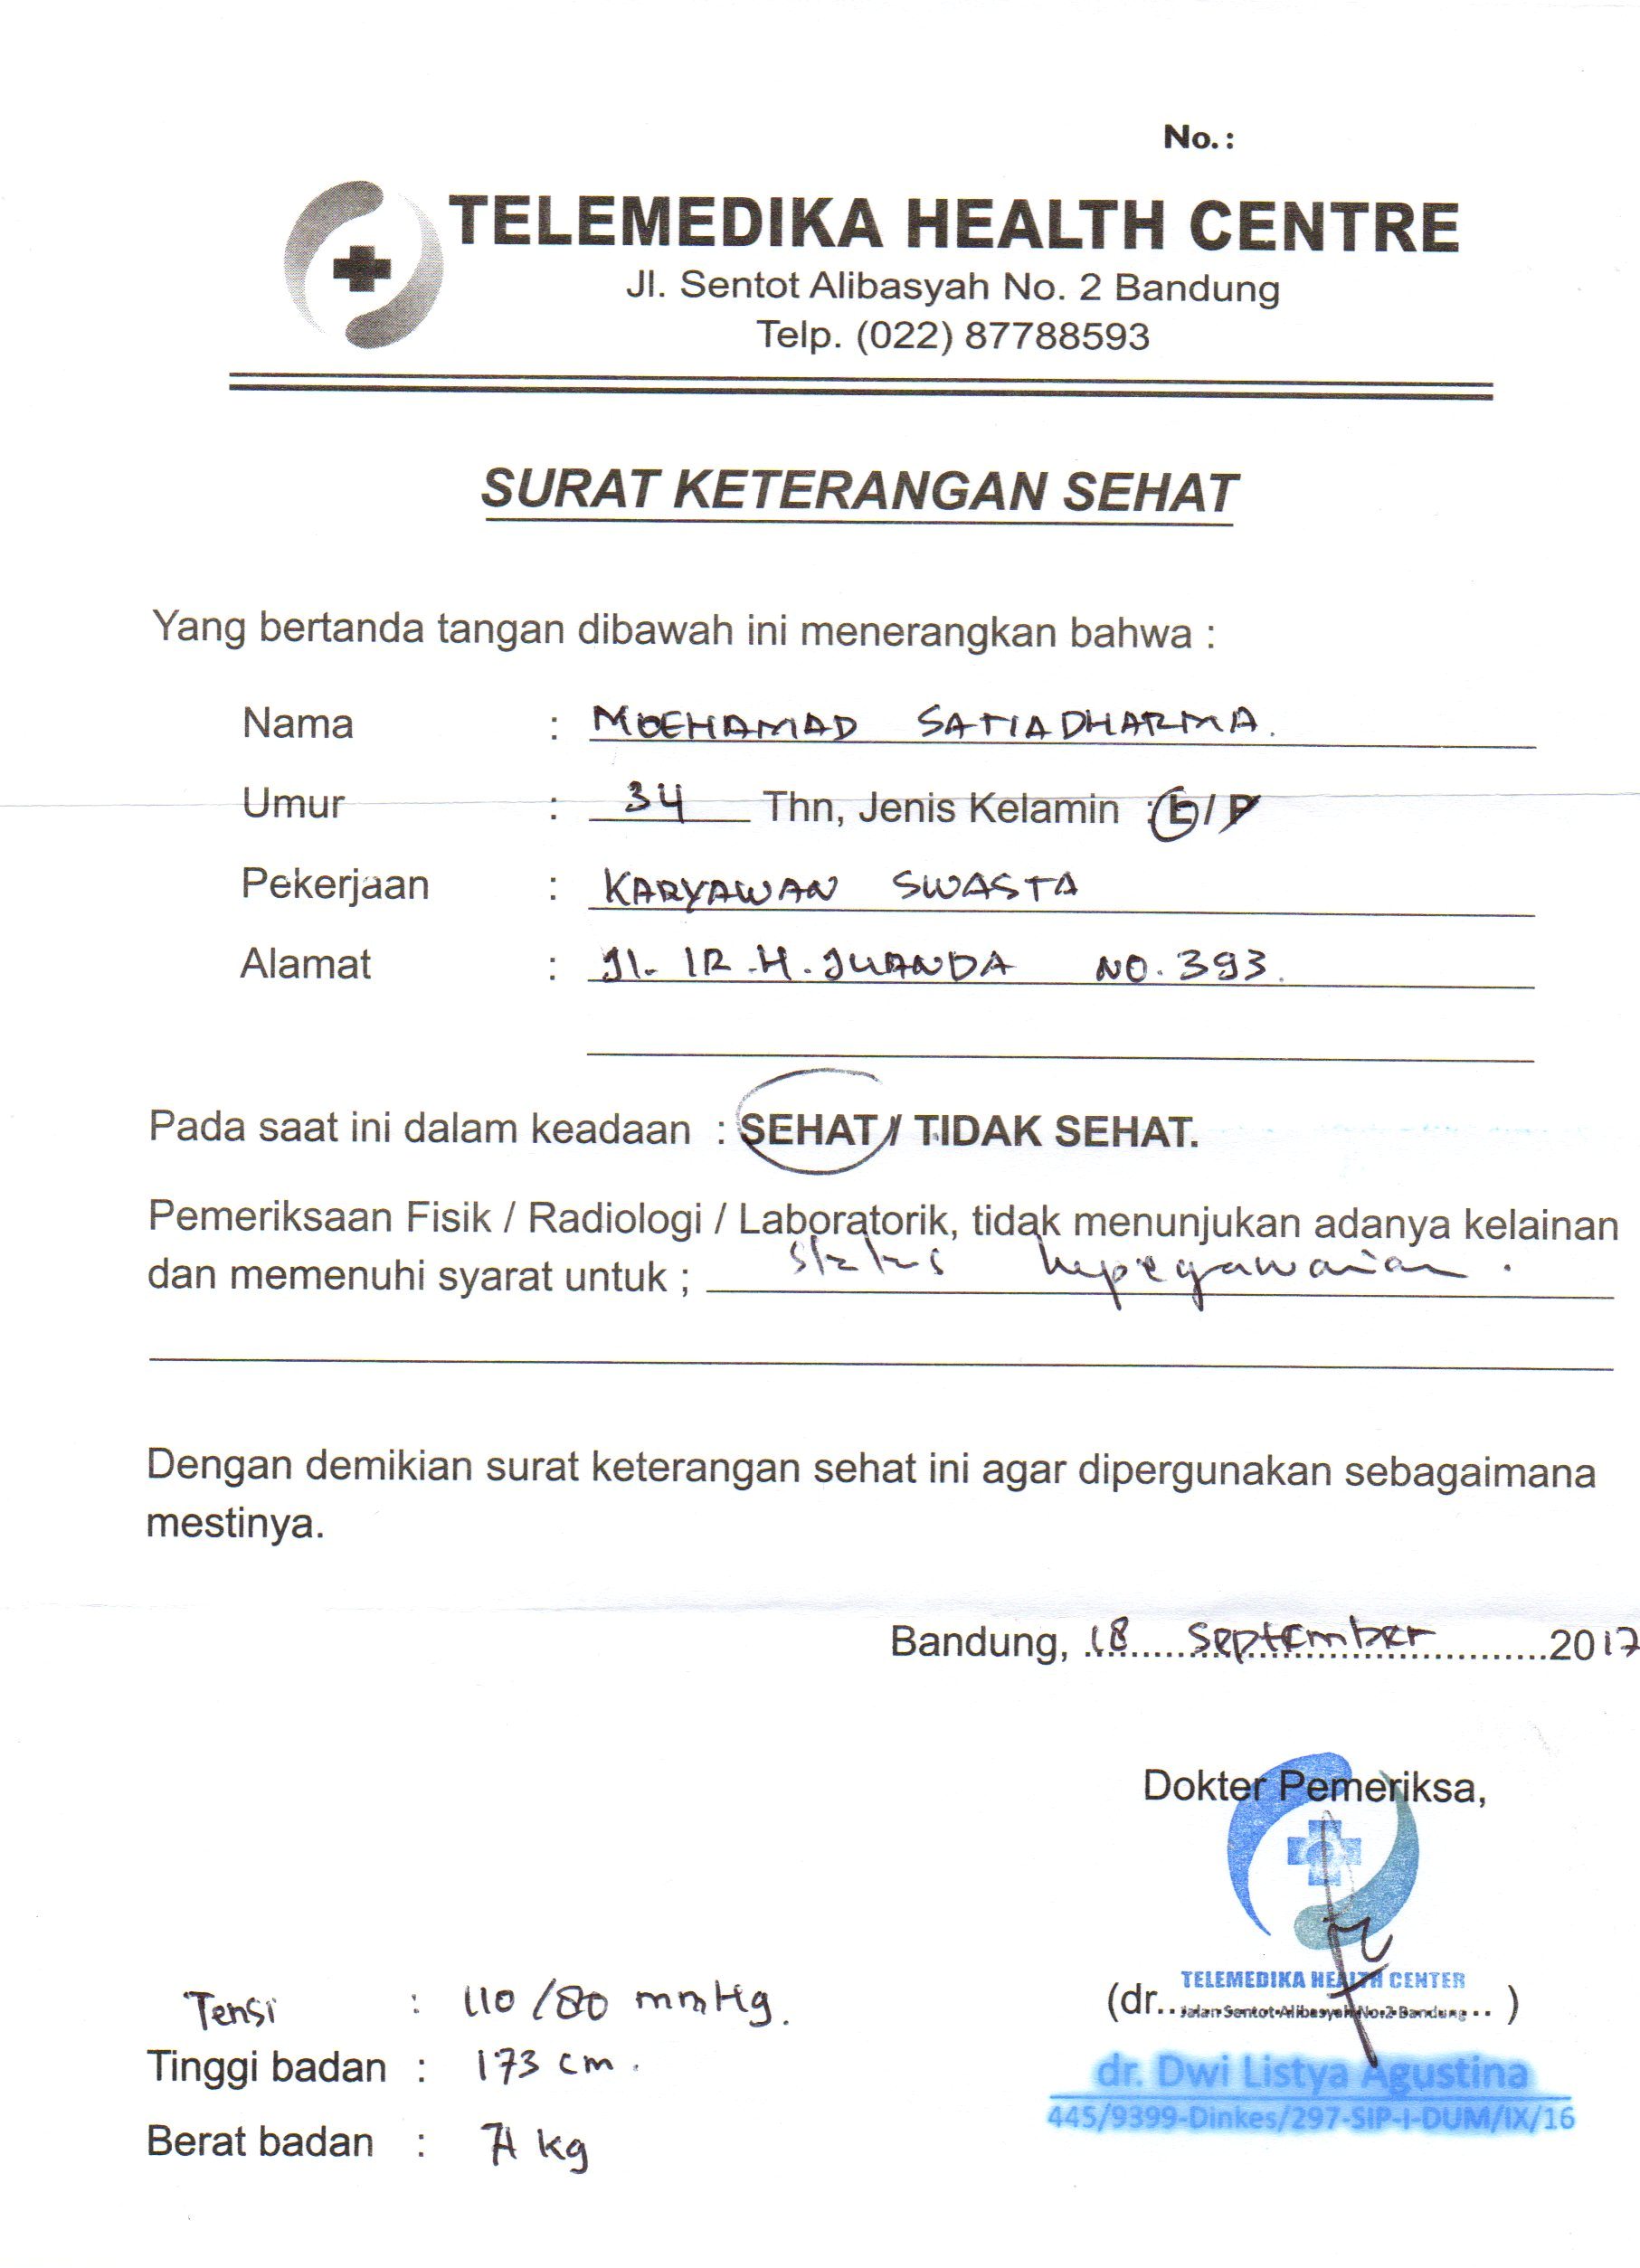 No. :
TELEMEDIKA HEALTH CENTRE
Jl. Sentot Alibasyah No. 2 Bandung
Telp. (022) 87788593
SURAT KETERANGAN SEHAT
Yang bertanda tangan dibawah ini menerangkan bahwa :
Nama : MOEHAMAD SATIADHARMA.
Umur : 34 Thn, Jenis Kelamin : L / P
Pekerjaan : KARYAWAN SWASTA
Alamat : Jl. IR. H. JUANDA NO. 393.
Pada saat ini dalam keadaan : SEHAT / TIDAK SEHAT.
Pemeriksaan Fisik / Radiologi / Laboratorik, tidak menunjukan adanya kelainan
dan memenuhi syarat untuk ; status kepegawaian.
Dengan demikian surat keterangan sehat ini agar dipergunakan sebagaimana
mestinya.
Bandung, 18 September 2017
Dokter Pemeriksa,
TELEMEDIKA HEALTH CENTER
(dr. Jalan Sentot Alibasyah No.2 Bandung )
dr. Dwi Listya Agustina
445/9399-Dinkes/297-SIP-I-DUM/IX/16
Tensi : 110/80 mmHg.
Tinggi badan : 173 cm.
Berat badan : kg